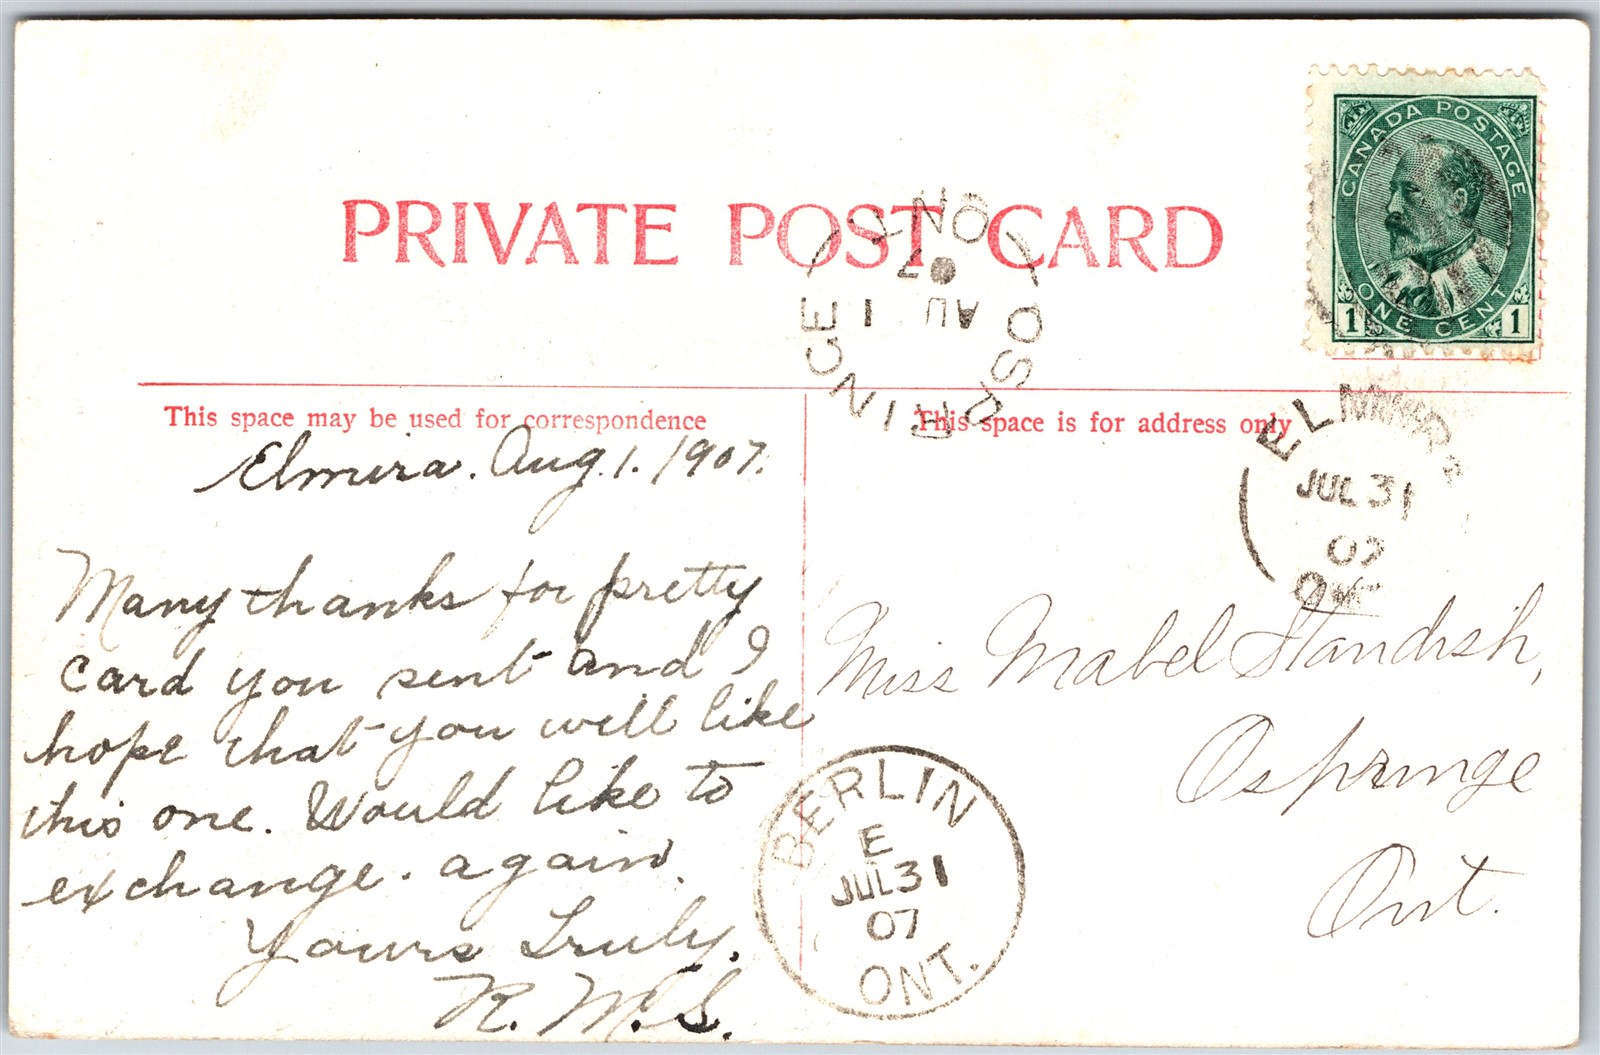 PRIVATE POST CARD
CANADA POSTAGE
ONE CENT
1 1
OSPRINGE
AU 1
07
ONT
This space may be used for correspondence
This space is for address only
ELMIRA
JUL 31
07
ONT
Elmira. Aug. 1. 1907.
Many thanks for pretty
card you sent and I
hope that you will like
this one. Would like to
exchange. again.
Yours Truly.
R. M. S.
Miss Mabel Standish,
Ospringe
Ont.
BERLIN
E
JUL 31
07
ONT.